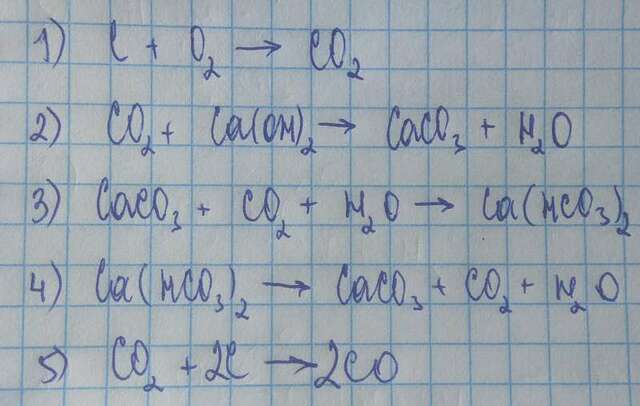 1) C + O₂ → CO₂
2) CO₂ + Ca(OH)₂ → CaCO₃ + H₂O
3) CaCO₃ + CO₂ + H₂O → Ca(HCO₃)₂
4) Ca(HCO₃)₂ → CaCO₃ + CO₂ + H₂O
5) CO₂ + 2C → 2CO